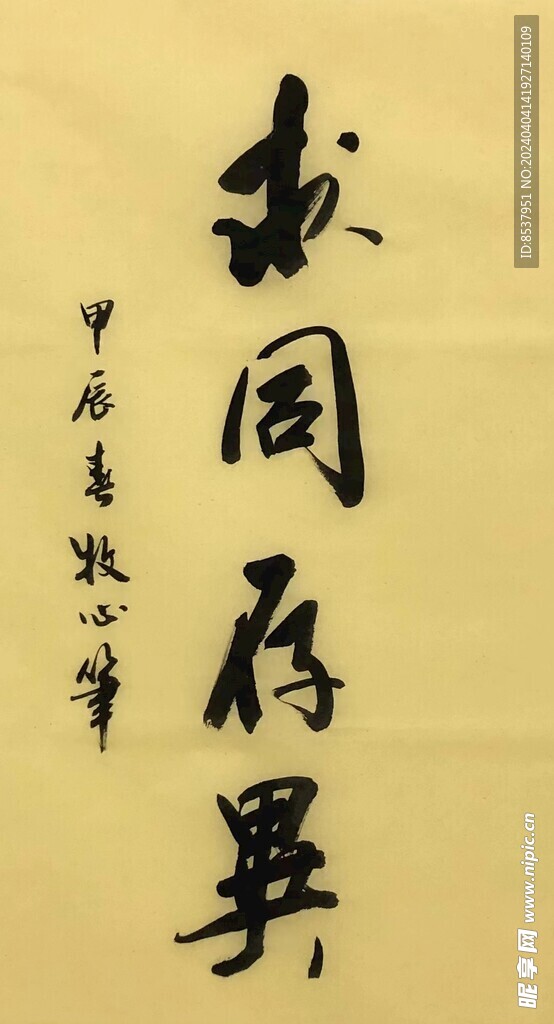 求同存異
甲辰春牧心筆
ID:8537951 NO:20240404141927140109
昵享网 www.nipic.cn